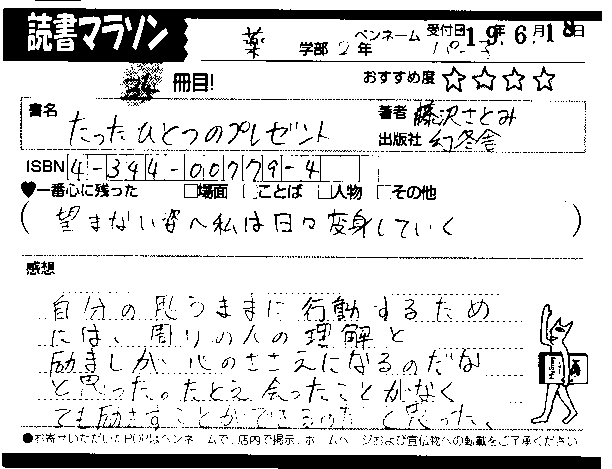 読書マラソン
薬 学部 2年 ペンネーム 受付日 19年 6月18日
冊目! おすすめ度 ☆☆☆☆
書名 たったひとつのプレゼント 著者 藤沢さとみ
出版社 幻冬舎
ISBN 4-344-00779-4
♥一番心に残った □場面 □ことば □人物 □その他
(望まない姿へ私は日々変身していく)
感想
自分の思うままに行動するため
には、周りの人の理解と
励ましが、心のささえになるのだな
と思った。たとえ会ったことがなく
ても励ますことができるのだと思った。
●お寄せいただいたPOPはペンネームで、店内で掲示、ホームページおよび宣伝物への転載をご了承ください